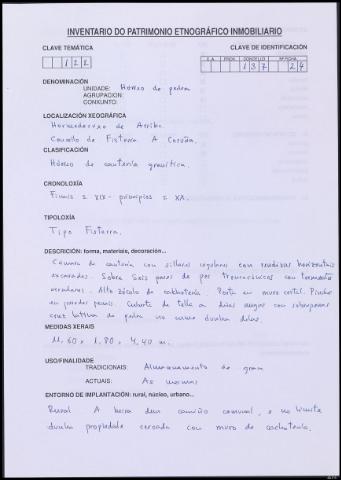 INVENTARIO DO PATRIMONIO ETNOGRÁFICO INMOBILIARIO
CLAVE TEMÁTICA
CLAVE DE IDENTIFICACIÓN
C.A. PROV. CONCELLO Nº FICHA
1 2 2
1 3 7 2 4
DENOMINACIÓN
UNIDADE: Hórreo de pedra
AGRUPACION:
CONXUNTO:
LOCALIZACIÓN XEOGRÁFICA
de Arriba.
Concello de Fisterra A Coruña.
CLASIFICACIÓN
Hórreo de cantería granítica.
CRONOLOXÍA
Finais s. XIX - principios s. XX.
TIPOLOXÍA
Tipo Fisterra.
DESCRICIÓN: forma, materiais, decoración...
Cámara de cantería con sillares regulares con rendixas horizontais
escavadas. Sobre seis pares de pés troncocónicos con tornarratos
Alto zócalo de cachotería Porta en muro costal.
en paredes penais. Cuberta de tella a dúas augas con
cruz latina de pedra no cume dunha delas.
MEDIDAS XERAIS
11,60 x 1,80 x 4,40 m.
USO/FINALIDADE
TRADICIONAIS: Almacenamento de gran
ACTUAIS: As mesmas
ENTORNO DE IMPLANTACIÓN: rural, núcleo, urbano...
Rural A beira dun camiño comunal, e no límite
dunha propiedade cercada con muro de cachotería.